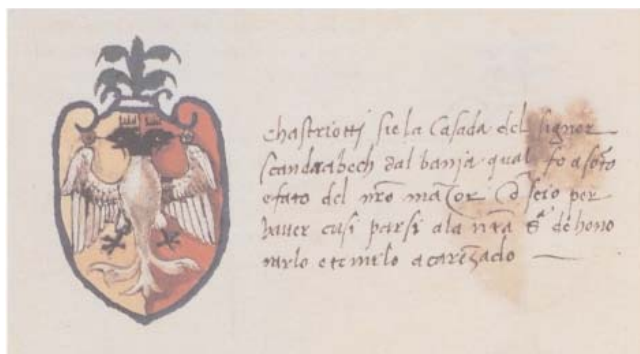 chastriotti sie la Casada del signor
scandrabech dal banja qual fo asoto
efato del nro mazor Cōseio per
haver cusi parsi ala nra Sª de hono
rarlo e tenirlo acarezado